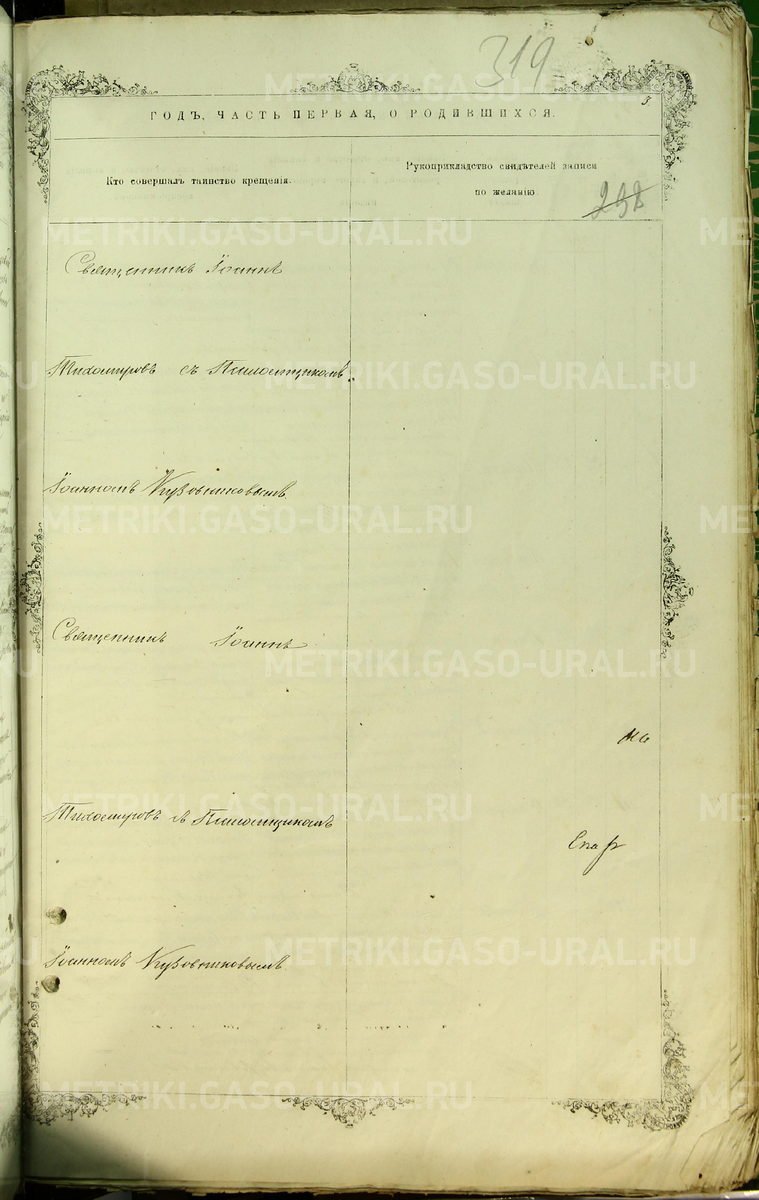 319
3
ГОДЪ, ЧАСТЬ ПЕРВАЯ, О РОДИВШИХСЯ.
Кто совершалъ таинство крещенія.
Рукоприкладство свидѣтелей записи
по желанію.
238
Священникъ Іоаннъ
Тихомировъ съ Псаломщикомъ
Іоанномъ Кузовниковымъ
Священникъ Іоаннъ
Тихомировъ съ Псаломщикомъ
Іоанномъ Кузовниковымъ
METRIKI.GASO-URAL.RU